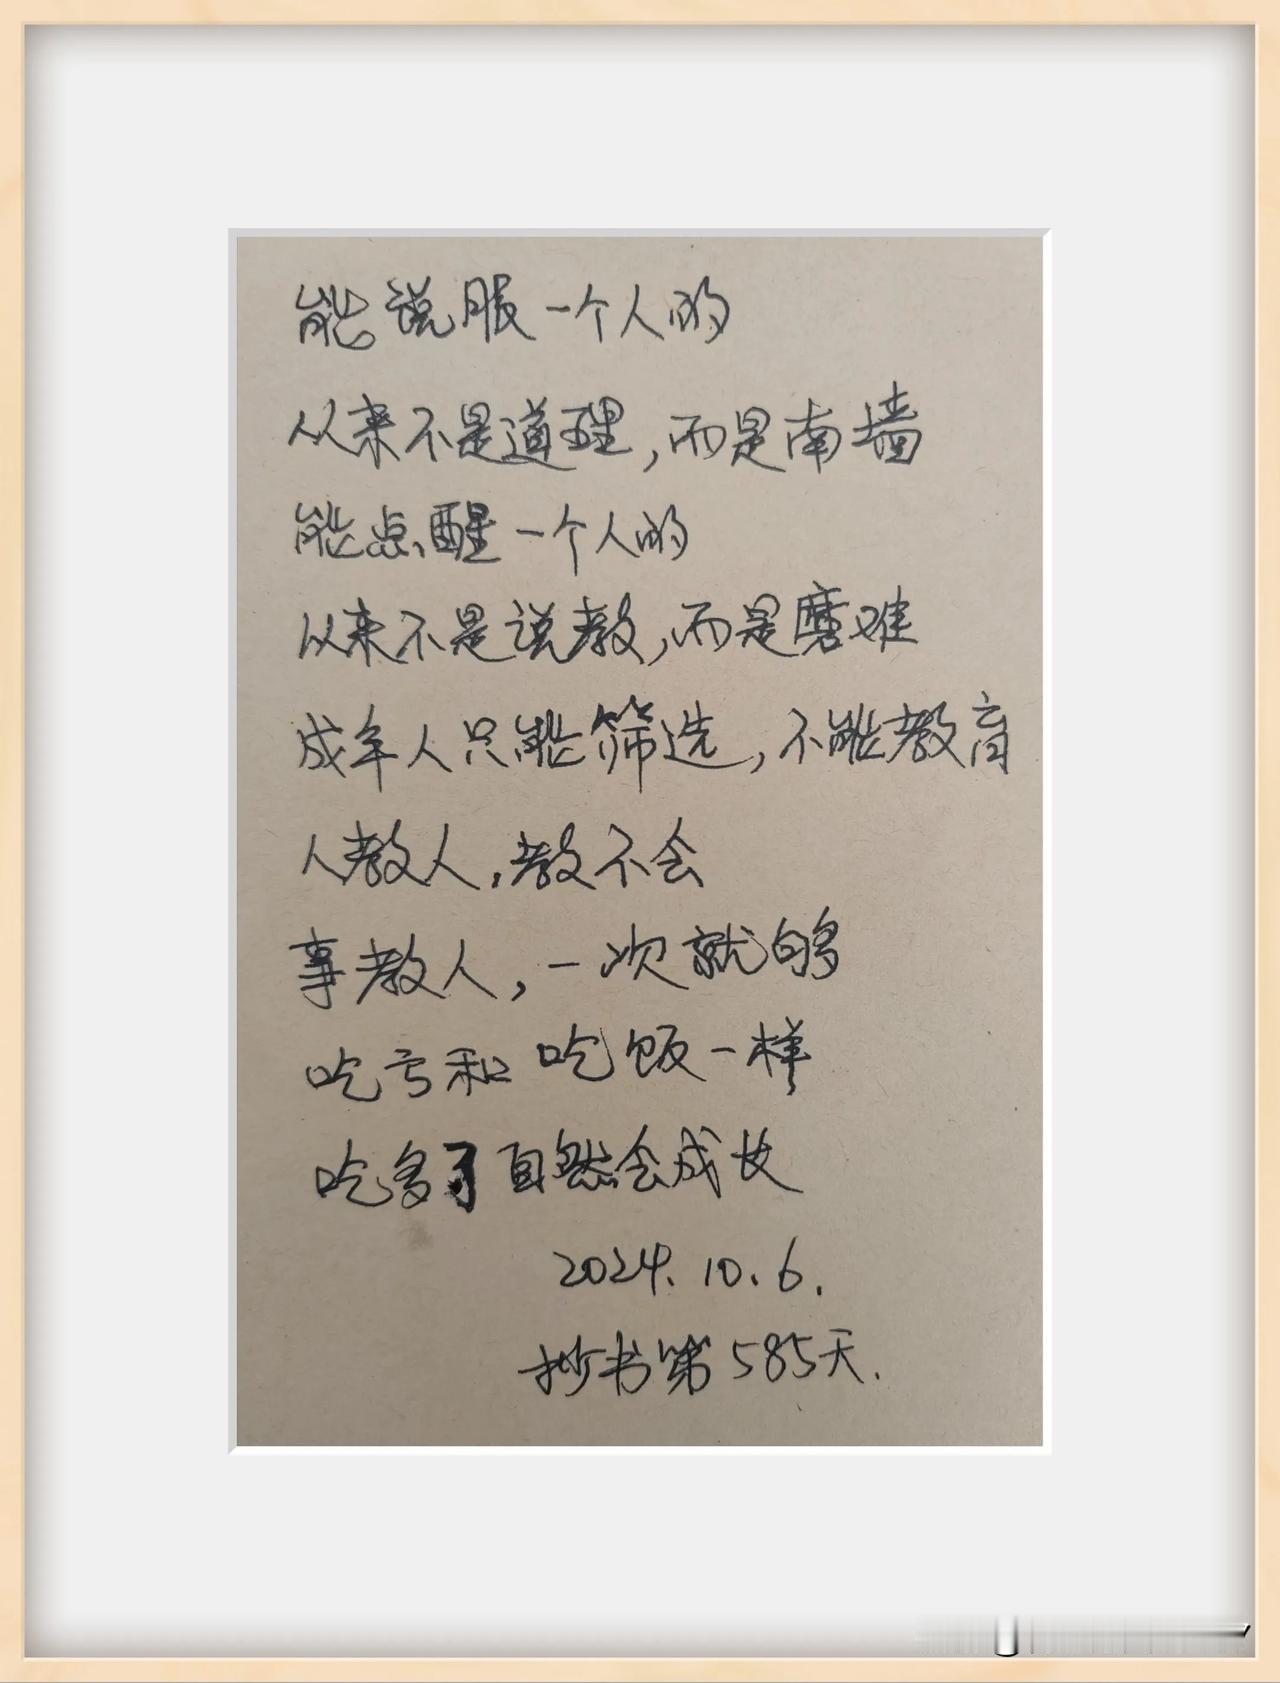 能说服一个人的
从来不是道理,而是南墙
能点醒一个人的
从来不是说教,而是磨难
成年人只能筛选,不能教育
人教人,教不会
事教人,一次就够
吃亏和吃饭一样
吃多了自然会成长
2024.10.6.
抄书第585天.